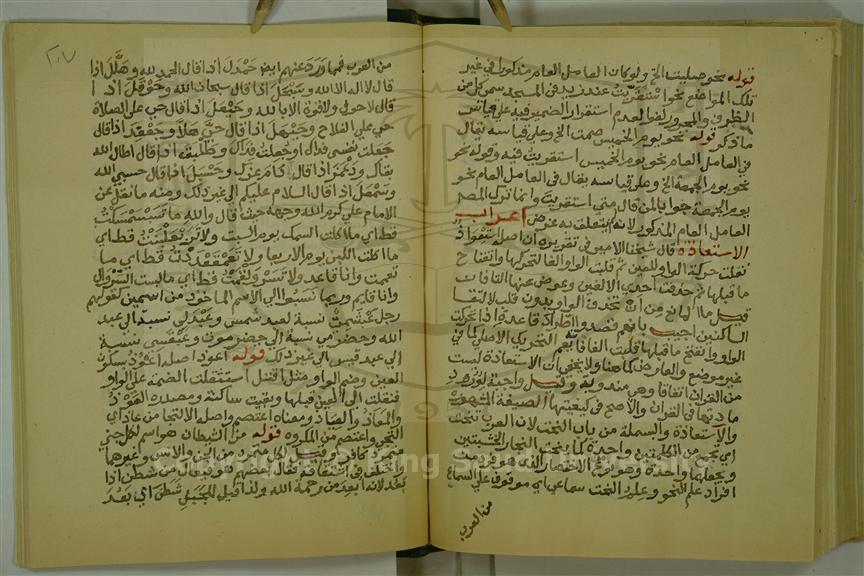 قوله نحو صليت الخ ولو كان العامل العام مذكورا في غير
تلك المواضع نحو استقريت عند زيد في المسجد سمي كل من
الظرف والمجرور لغوا لعدم استقرار الضمير فيه على قياس
ما ذكر قوله نحو يوم الخميس صمت الخ وعلى قياسه يقال
في العامل العام نحو يوم الخميس استقريت فيه وقوله نحو
نحو يوم الجمعة الخ وعلى قياسه يقال في العامل العام نحو
يوم الجمعة جوابا لمن قال متى استقريت وانما ترك المص
العامل العام المذكور لانه لم يتعلق به غرض اعراب
الاستعاذة قال شيخنا الامير في تقريره ان اصله استعواذ
نقلت حركة الواو للعين ثم قلبت الواو الفا لتحركها وانفتاح
ما قبلها ثم حذفت احدى الالفين وعوض عنها التا فان
قيل ما المانع من ان تحذف الواو بدون قلب لالتقا
الساكنين اجيب بانهم قصدوا اطراد قاعدة اذا تحركت
الواو وانفتح ما قبلها قلبت الفا فا التحريك الاصلي كما في
غير موضع والعارض كما هنا ولا يخفى ان الاستعاذة ليست
من القران اتفاقا وهي مندوبة وقيل واجبة لورود
مادتها في القران والاصح في كيفيتها الصيغة المشهورة
والاستعاذة والبسملة من باب النحت لان العرب تنحت
اي تجمع من الكلمتين واحدة كما ينحت النجار الخشبتين
ويجعلهما واحدة وهو نوع من الاختصار
افراد علم النحو و النحت سماعي اي موقوف على السماع
من العرب
٢٠٧
من العرب فمما ورد عنهم ايض حمدل اذا قال الحمد لله وهلل اذا
قال لا اله الا الله وسبحل اذا قال سبحان الله وحوقل اذا
قال لا حول ولا قوة الا بالله وحيعل اذا قال حي على الصلاة
حي على الفلاح وحيهل اذا قال حي هلا وجعفد اذا قال
جعلت نفسي فداك او جعلت فداك وطلبق اذا قال اطال الله
بقاك ودمعز اذا قال ادام عزك وحسبل اذا قال حسبي الله
وسمعل اذا قال السلام عليكم الى غير ذلك ومنه ما نقل عن
الامام علي كرم الله وجهه حيث قال والله ما تسبتسمكت
قط اي ما اكلت السمك يوم السبت ولا قط اي
ما اكلت اللبن يوم الاربعا ولا تعمقعددت قط اي ما
تعممت وانا قاعد ولا تسرولقمت قط اي ما لبست السروال
وانا قايم وربما نسبوا الى الاسم الماخوذ من اسمين كقولهم
رجل عبشمي نسبة لعبد شمس وعبدلي نسبة الى عبد
الله وحضرمي نسبة الى حضرموت وعبقسي نسبة
الى عبد قيس الى غير ذلك قوله اعوذ اصله اعوذ بسكون
العين وضم الواو مثل اقتل استثقلت الضمة على الواو
فنقلت الى العين قبلها وبقيت ساكنة ومصدره العوذ
والمعاذ والعياذ ومعناه اعتصم واصله الالتجا من عاذ اي
التجى واعتصم من المكروه قوله من الشيطان هو اسم لكل جني
كافر وقيل لكل متمرد من الجن والانس وغيرهما
واختلف في اشتقاقه فقال بعضهم هو فيعال من شطن اذا
بعد لانه ابعد من رحمة الله ولذا قيل للحبل شطن اي بعد
Copyright © King Saud University